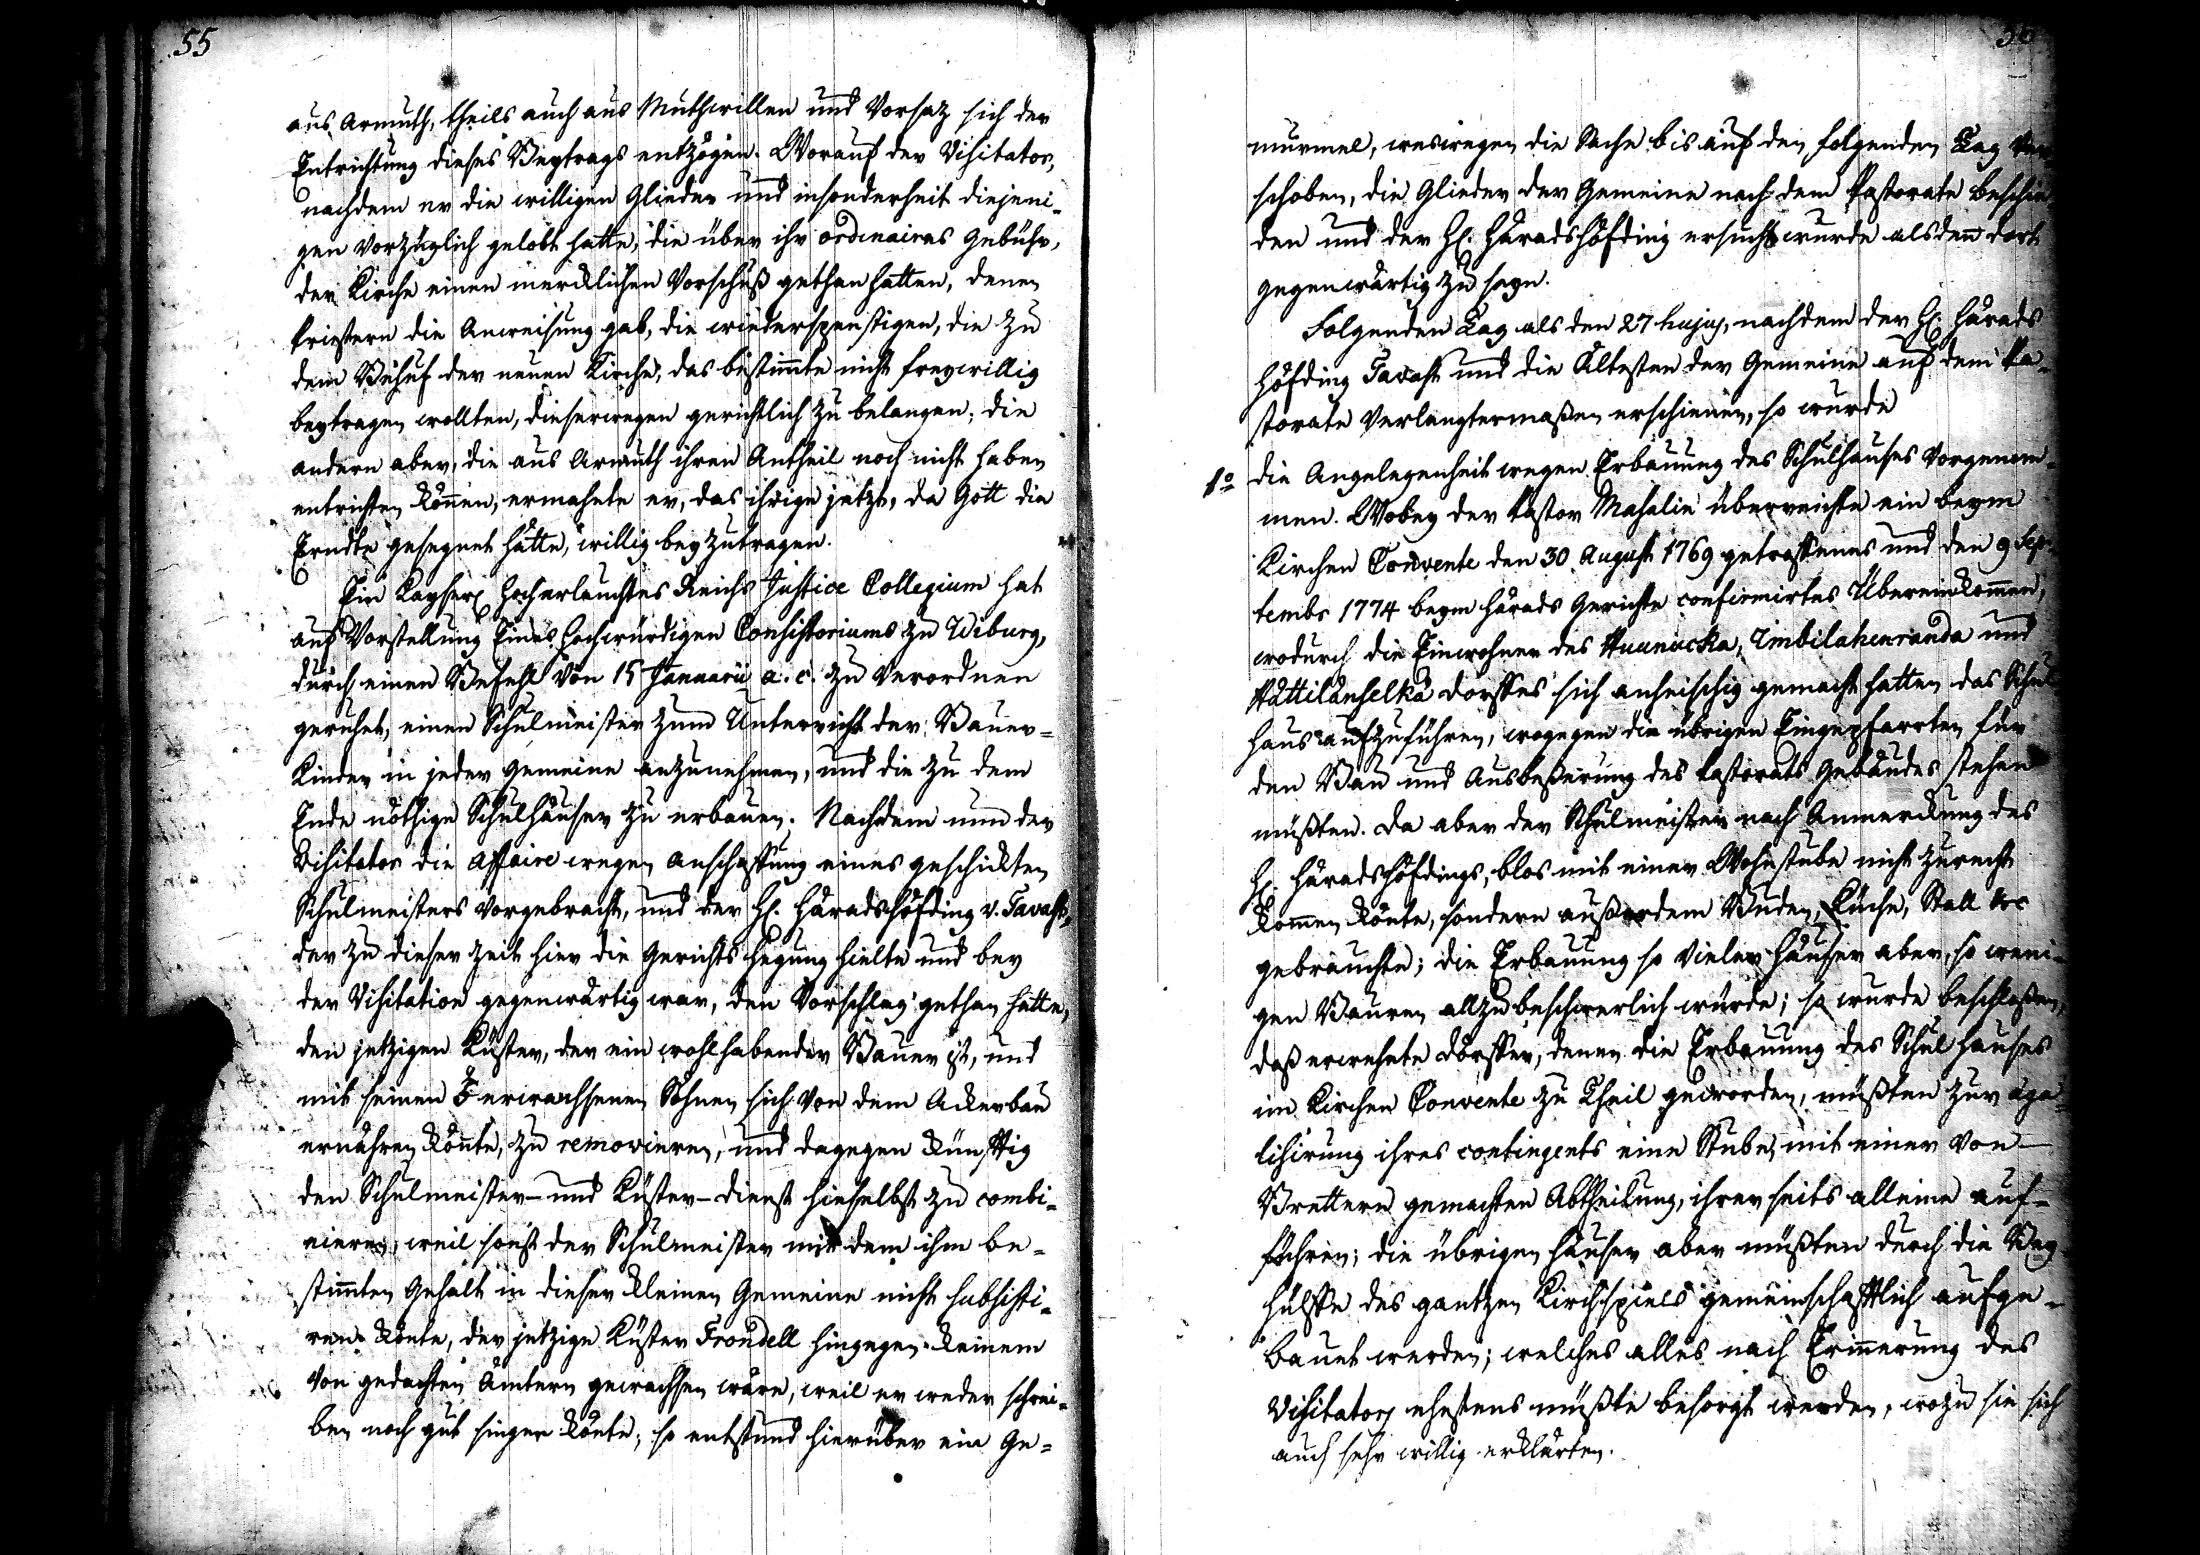 55
aus Armuth, theils auch aus Muthwillen und Vorsaz sich der
Entrichtung dieses Beytrags entzögen. Worauf der Visitator,
nachdem er die willigen Glieder und insonderheit diejeni-
gen vorzüglich gelobt hatte, die über ihr ordinaires Gebühr,
der Kirche einen mercklichen Vorschuß gethan hatten, denen
Priestern die Anweisung gab, die wiederspenstigen, die zu
dem Behuf der neuen Kirche, das bestimte nicht freywillig
beytragen wollten, dieserwegen gerichtlich zu belangen; die
andern aber, die aus Armuth ihren Antheil noch nicht haben
entrichten können, ermahnte er, das ihrige jetzt, da Gott die
Erndte gesegnet hätte, willig beyzutragen.
Ein Kayserl Hocherleuchtes Reichs Justice Collegium hat
auf Vorstellung Eines Hochwürdigen Consistoriums zu Wiburg,
durch einen Befehl von 15 Januarii a. c. zu verordnen
geruhet, einen Schulmeister zum Unterricht der Bauer=
Kinder in jeder Gemeine anzunehmen, und die zu dem
Ende nöthige Schulhäuser zu erbauen. Nachdem nun der
Visitator die Affaire wegen Anschaffung eines geschickten
Schulmeisters vorgebracht, und der H. Häradshöfding v. Tavast,
der zu dieser Zeit hier die Gerichts Hegung hielte und bey
der Visitation gegenwärtig war, den Vorschlag gethan hatte,
den jetzigen Küster, der ein wohlhabender Bauer ist, und
mit seinen erwachsenen Söhnen sich von dem Ackerbau
ernähren könte, zu removieren, und dagegen künfftig
den Schulmeister- und Küster-Dienst hieselbst zu combi-
nieren, weil sonst der Schulmeister mit dem ihm be=
stimten Gehalt in dieser kleinen Gemeine nicht subsisti-
ren könte, der jetzige Küster Frondell hingegen keinem
von gedachten Ämtern gewachsen wäre, weil er weder schrei-
ben noch gut singen könte; so entstund hierüber ein Ge=
murmel, weswegen die Sache bis auf den folgenden Tag ver
schoben, die Glieder der Gemeine nach dem Pastorate beschie
den und der H. Häradshöfding ersucht wurde alsden dort
gegenwärtig zu seyn.
Folgenden Tag als den 27 hujus, nachdem der H. Härads
höfding Tavast und die Ältesten der Gemeine auf dem Pa-
storate verlangtermaßen erschienen, so wurde
1o die Angelegenheit wegen Erbauung des Schulhauses vorgenom-
men. Wobey der Pastor Mahalin überreichte ein beym
Kirchen Convente den 30 August 1769 getroffenes und den 9 Sep-
tembr 1774 beym Härads Gerichte confirmirtes Übereinkomen,
wodurch die Einwohner des Huunucka, Imbilahenranda und
Hättilänselkä Dorffes sich anheischig gemacht hatten das Schul
haus aufzuführen, wogegen die übrigen Eingepfarrten für
den Bau und Ausbeßerung des Pastorats Gebäudes stehen
müßten. Da aber der Schulmeister nach Anmerckung des
H. Häradshöfdings, blos mit einer Wohnstube nicht zurecht
komen könte, sondern außerdem Buden, Küche, Stall etc
gebrauchte; die Erbauung so vieler Häuser aber, so weni-
gen Bauren allzu beschwerlich würde; so wurde beschloßen,
daß erwehnte Dörffer, denen die Erbauung des Schul Hauses
im Kirchen Convente zu Theil geworden, müßten zur äga-
lisirung ihres contingents eine Stube, mit einer von
Brettern gemachten Abtheilung, ihrer seits alleine auf-
führen; die übrigen Häuser aber müßten durch die Bey
hülffe des gantzen Kirchspiels gemeinschafftlich aufge-
bauet werden; welches alles nach Erinerung des
Visitators ehestens müßte besorgt werden, wozu sie sich
auch sehr willig erklärten.